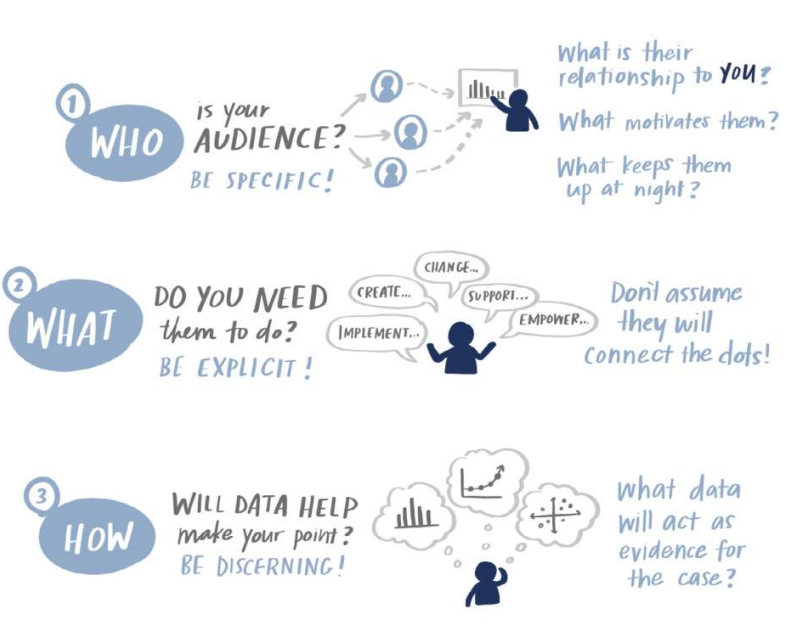 1
WHO
is your
AUDIENCE?
BE SPECIFIC!
What is their
relationship to YOU?
What motivates them?
What keeps them
up at night?
2
WHAT
DO YOU NEED
them to do?
BE EXPLICIT!
CHANGE...
CREATE...
SUPPORT...
IMPLEMENT...
EMPOWER...
Don't assume
they will
connect the dots!
3
HOW
WILL DATA HELP
make your point?
BE DISCERNING!
What data
will act as
evidence for
the case?